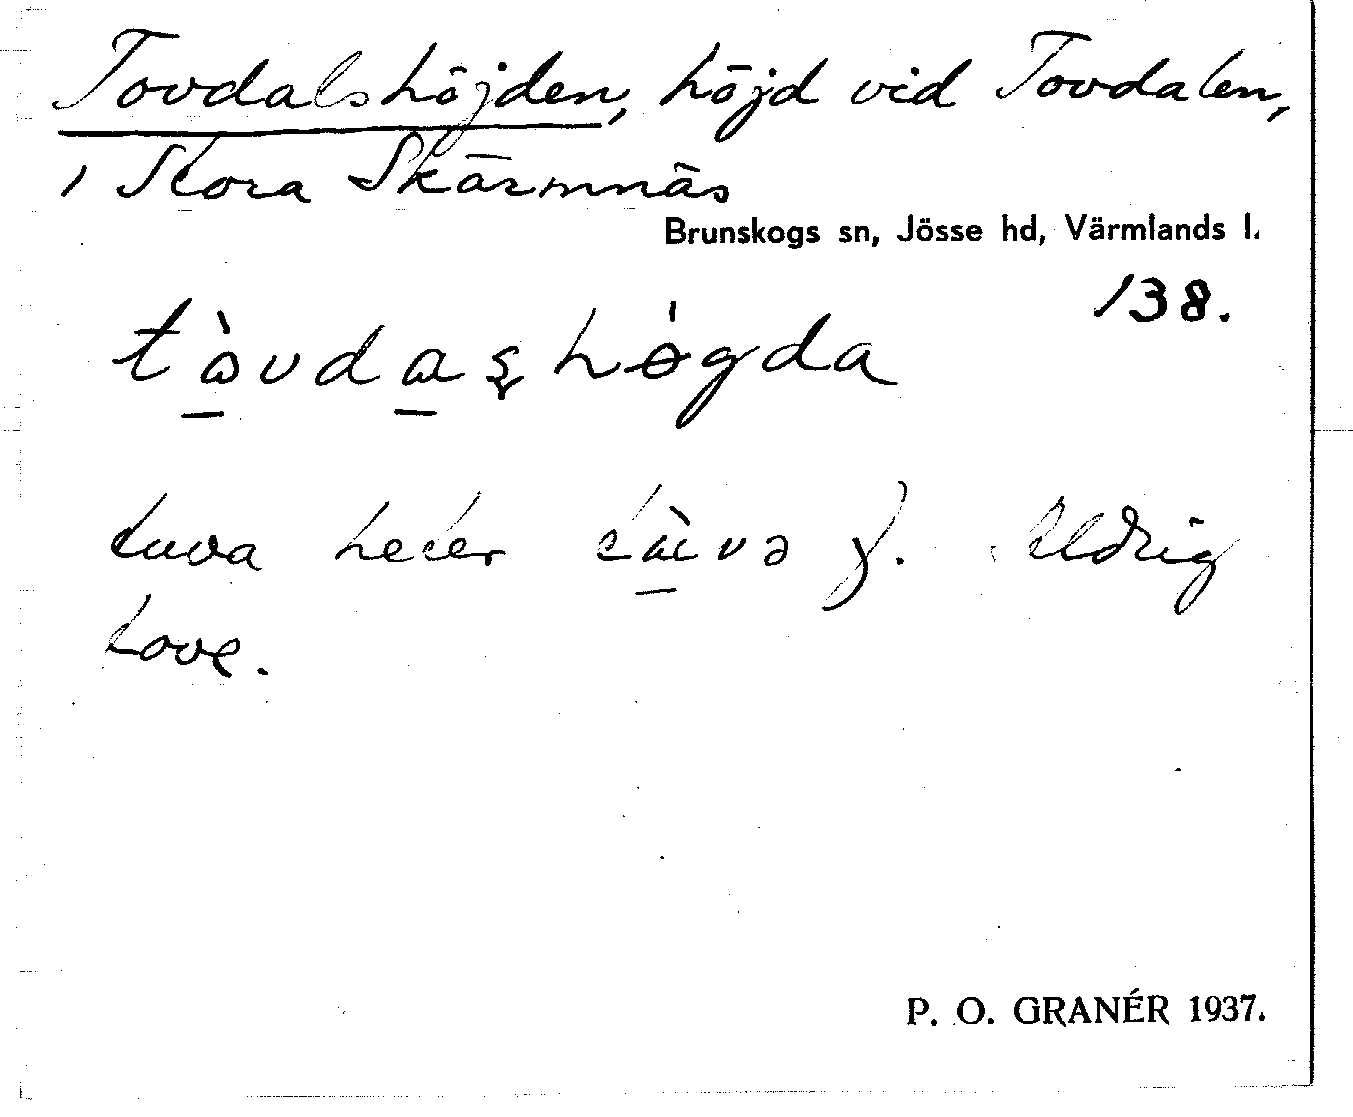 Tovdalshöjden, höjd vid Tovdalen,
i Stora Skärmnäs
Brunskogs sn, Jösse hd, Värmlands l.
138.
tòvdaşhǿgda
tuva heter tæ̀və f. Aldrig
tove.
P. O. GRANÉR 1937.